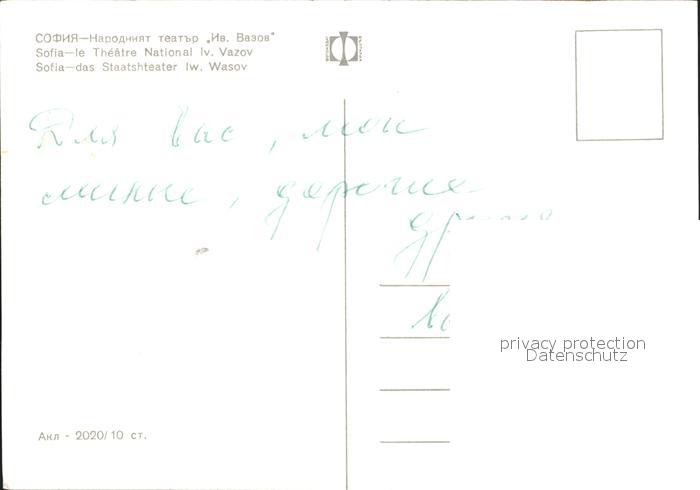 СОФИЯ—Народният театър „Ив. Вазов"
Sofia—le Théâtre National Iv. Vazov
Sofia—das Staatshteater Iw. Wasov
Для вас, мои
милые, дорогие
privacy protection
Datenschutz
Акл - 2020/10 ст.